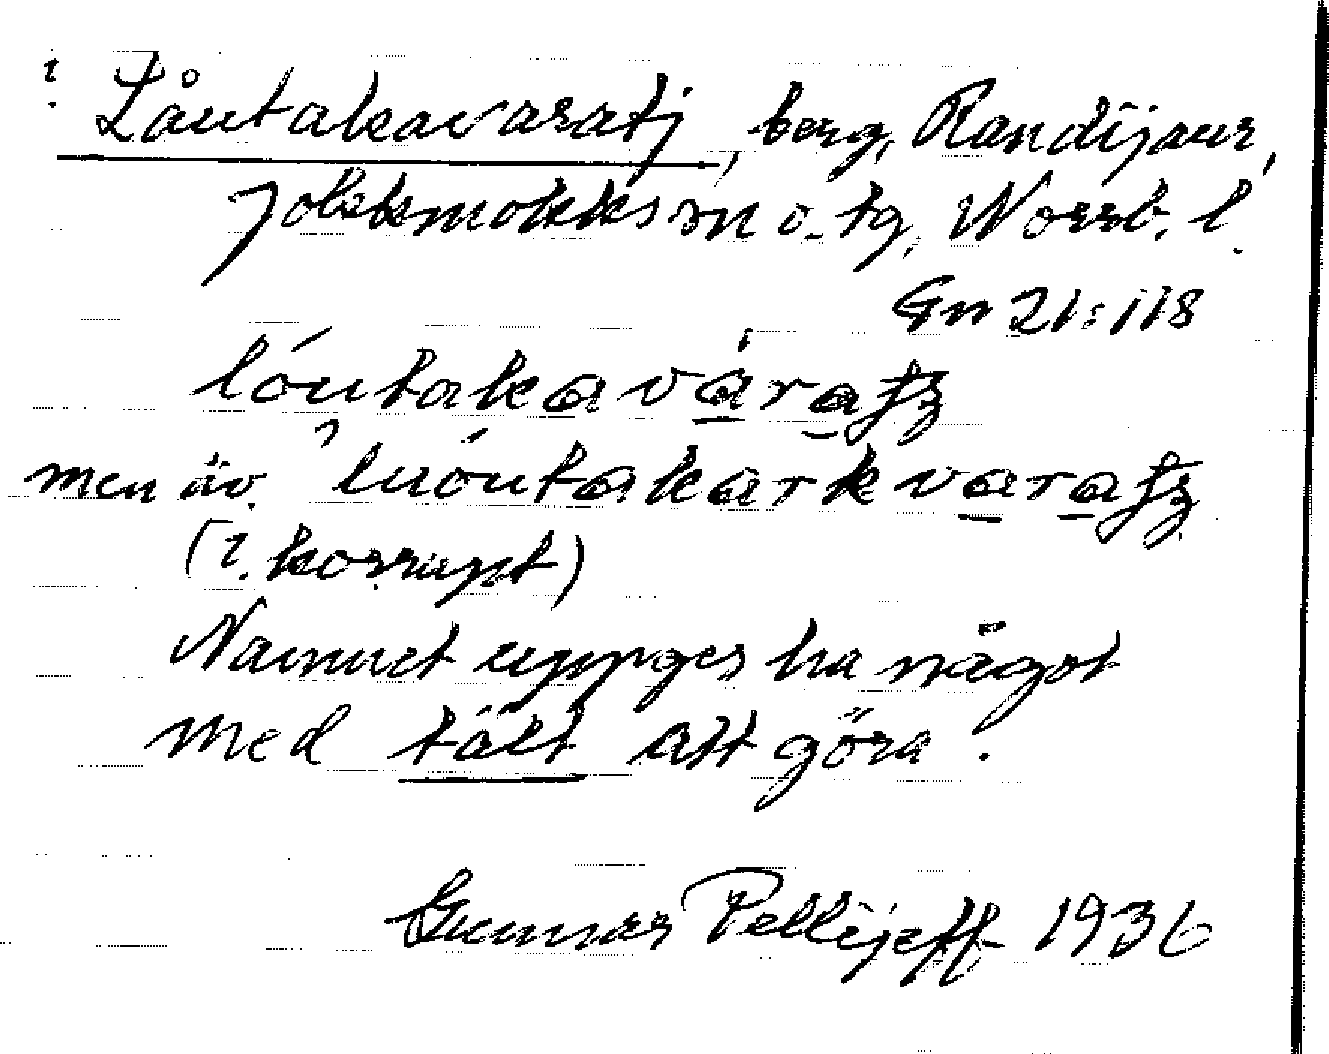 ? Låutakavaratj, berg, Randijaur,
Jokkmokks sn o. tg, Norrb. l.
Gn 21:118
lóutakaváratʒ
men äv. ? luóutakarkvaratʒ
(? korrupt)
Namnet uppges ha något
med tält att göra.
Gunnar Pellijeff 1936